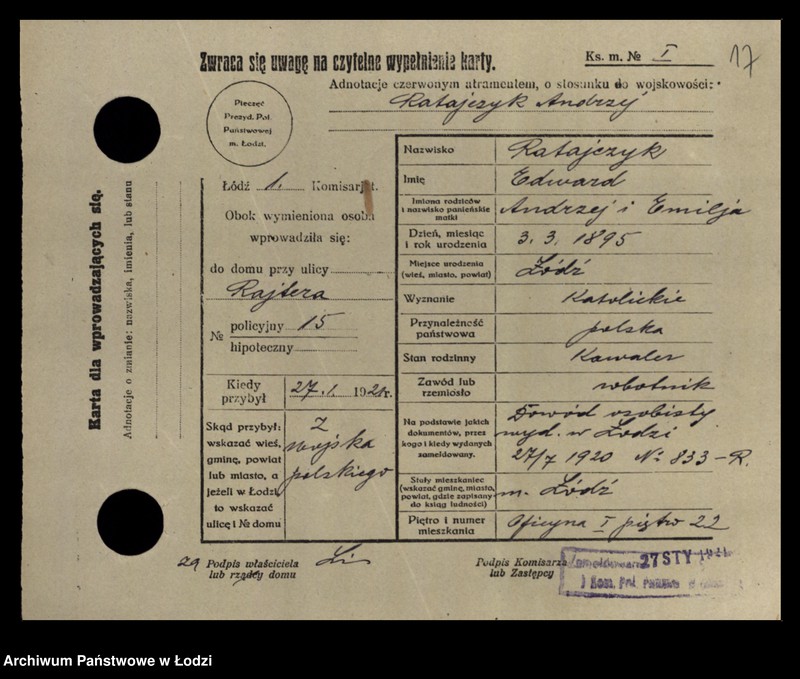 Zwraca się uwagę na czytelne wypełnienie karty.
Ks. m. № I
17
Adnotacje czerwonym atramentem, o stosunku do wojskowości:
Ratajczyk Andrzej
Pieczęć
Prezyd. Pol.
Państwowej
m. Łodzi.
Karta dla wprowadzających się.
Adnotacje o zmianie: nazwiska, imienia, lub stanu
Łódź 1. Komisarjat.
Obok wymieniona osoba
wprowadziła się:
do domu przy ulicy
Rajtera
№ policyjny 15
hipoteczny
Kiedy przybył 27.1. 1921r.
Skąd przybył:
wskazać wieś,
gminę, powiat
lub miasto, a
jeżeli w Łodzi,
to wskazać
ulicę i № domu
Z
wojska
polskiego
Nazwisko Ratajczyk
Imię Edward
Imiona rodziców
i nazwisko panieńskie
matki
Andrzej i Emilja
Dzień, miesiąc
i rok urodzenia
3. 3. 1895
Miejsce urodzenia
(wieś, miasto, powiat)
Łódź
Wyznanie Katolickie
Przynależność
państwowa
polska
Stan rodzinny Kawaler
Zawód lub
rzemiosło
robotnik
Na podstawie jakich
dokumentów, przez
kogo i kiedy wydanych
zameldowany.
Dowód osobisty
wyd. w Łodzi
27/7 1920 № 833-R.
Stały mieszkaniec
(wskazać gminę, miasto,
powiat, gdzie zapisany
do ksiąg ludności)
m. Łódź
Piętro i numer
mieszkania
Oficyna I piętro 22
za Podpis właściciela
lub rządcy domu
Podpis Komisarza
lub Zastępcy
27 STY 1921
Archiwum Państwowe w Łodzi